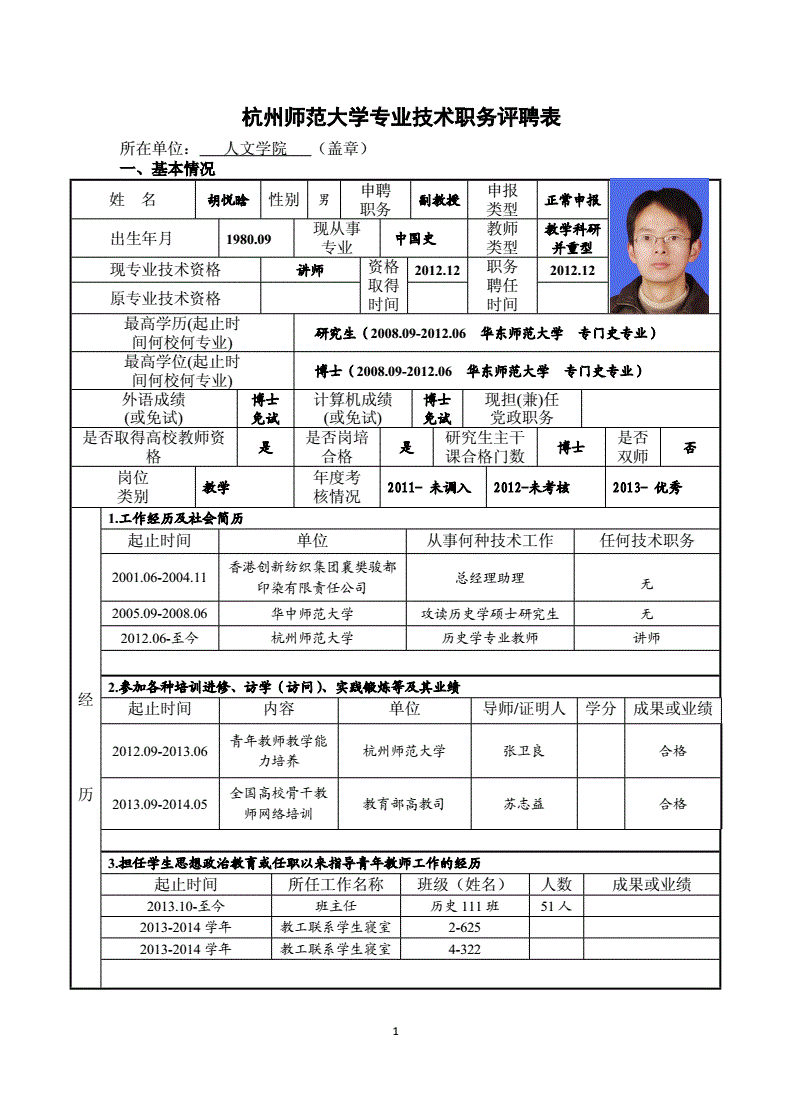 杭州师范大学专业技术职务评聘表
所在单位： 人文学院 （盖章）
一、基本情况
姓 名 胡悦晗 性别 男 申聘职务 副教授 申报类型 正常申报
出生年月 1980.09 现从事专业 中国史 教师类型 教学科研并重型
现专业技术资格 讲师 资格取得时间 2012.12 职务聘任时间 2012.12
原专业技术资格
最高学历(起止时间何校何专业) 研究生（2008.09-2012.06 华东师范大学 专门史专业）
最高学位(起止时间何校何专业) 博士（2008.09-2012.06 华东师范大学 专门史专业）
外语成绩(或免试) 博士免试 计算机成绩(或免试) 博士免试 现担(兼)任党政职务
是否取得高校教师资格 是 是否岗培合格 是 研究生主干课合格门数 博士 是否双师 否
岗位类别 教学 年度考核情况 2011- 未调入 2012-未考核 2013- 优秀
经历
1.工作经历及社会简历
起止时间 单位 从事何种技术工作 任何技术职务
2001.06-2004.11 香港创新纺织集团襄樊骏都印染有限责任公司 总经理助理 无
2005.09-2008.06 华中师范大学 攻读历史学硕士研究生 无
2012.06-至今 杭州师范大学 历史学专业教师 讲师
2.参加各种培训进修、访学（访问）、实践锻炼等及其业绩
起止时间 内容 单位 导师/证明人 学分 成果或业绩
2012.09-2013.06 青年教师教学能力培养 杭州师范大学 张卫良 合格
2013.09-2014.05 全国高校骨干教师网络培训 教育部高教司 苏志益 合格
3.担任学生思想政治教育或任职以来指导青年教师工作的经历
起止时间 所任工作名称 班级（姓名） 人数 成果或业绩
2013.10-至今 班主任 历史 111 班 51 人
2013-2014 学年 教工联系学生寝室 2-625
2013-2014 学年 教工联系学生寝室 4-322
1